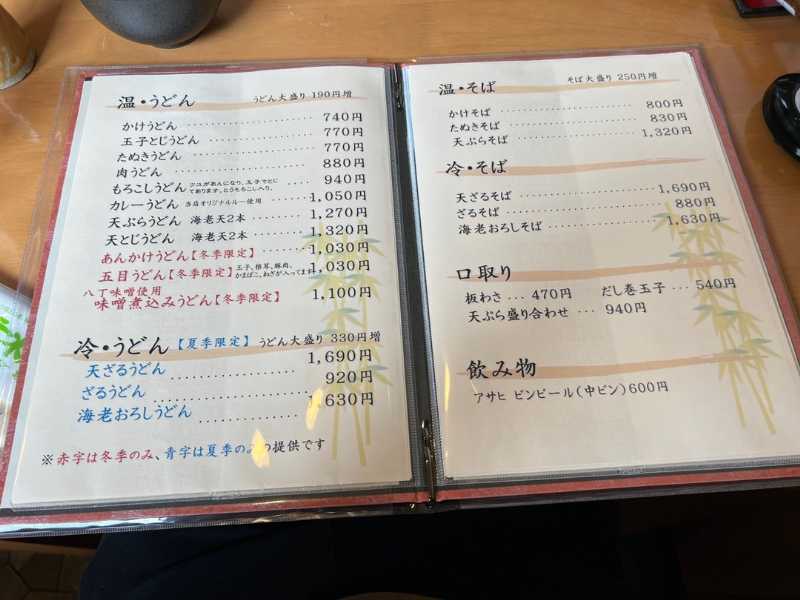 温・うどん うどん大盛り 190円増
かけうどん 740円
玉子とじうどん 770円
たぬきうどん 770円
肉うどん 880円
もろこしうどん ツユがあんになり、玉子でとじてあります。とうもろこし入り。 940円
カレーうどん 当店オリジナルルー使用 1,050円
天ぷらうどん 海老天2本 1,270円
天とじうどん 海老天2本 1,320円
あんかけうどん【冬季限定】 1,030円
五目うどん【冬季限定】玉子、椎茸、豚肉、かまぼこ、ねぎが入ってます。 1,030円
八丁味噌使用
味噌煮込みうどん【冬季限定】 1,100円
冷・うどん【夏季限定】 うどん大盛り 330円増
天ざるうどん 1,690円
ざるうどん 920円
海老おろしうどん 1,630円
※赤字は冬季のみ、青字は夏季のみの提供です
温・そば そば大盛り 250円増
かけそば 800円
たぬきそば 830円
天ぷらそば 1,320円
冷・そば
天ざるそば 1,690円
ざるそば 880円
海老おろしそば 1,630円
口取り
板わさ … 470円 だし巻玉子 … 540円
天ぷら盛り合わせ … 940円
飲み物
アサヒ ビンビール(中ビン)600円